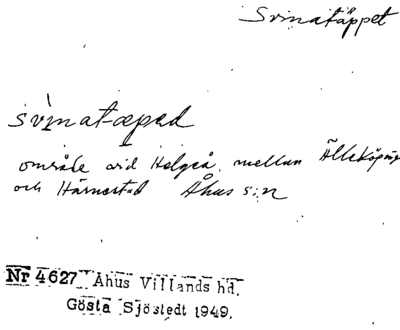 Svinatäppet
svìnat-æped
område vid Helgeå, mellan Ällaköpinge
och Härnestad Åhus s:n
Nr 4627 Åhus Villands hd.
Gösta Sjöstedt 1949.